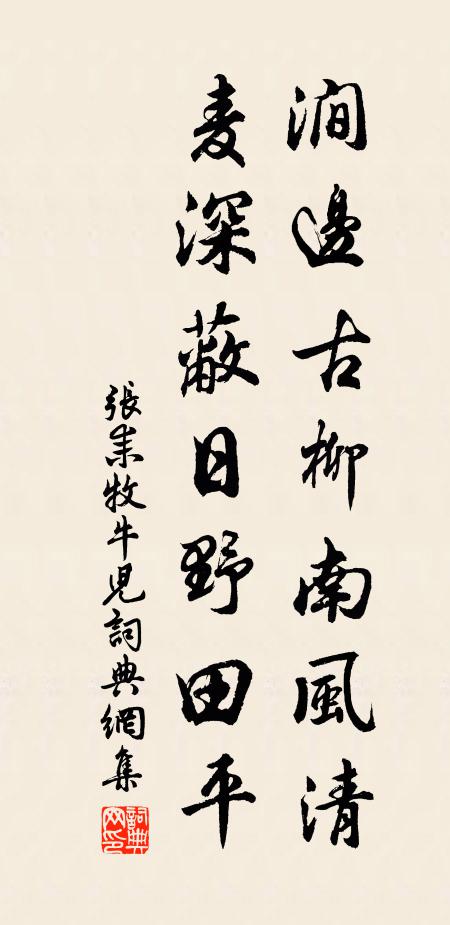 澗邊古柳南風清
麦深蔽日野田平
張耒牧牛児詞典網集
詞典网印